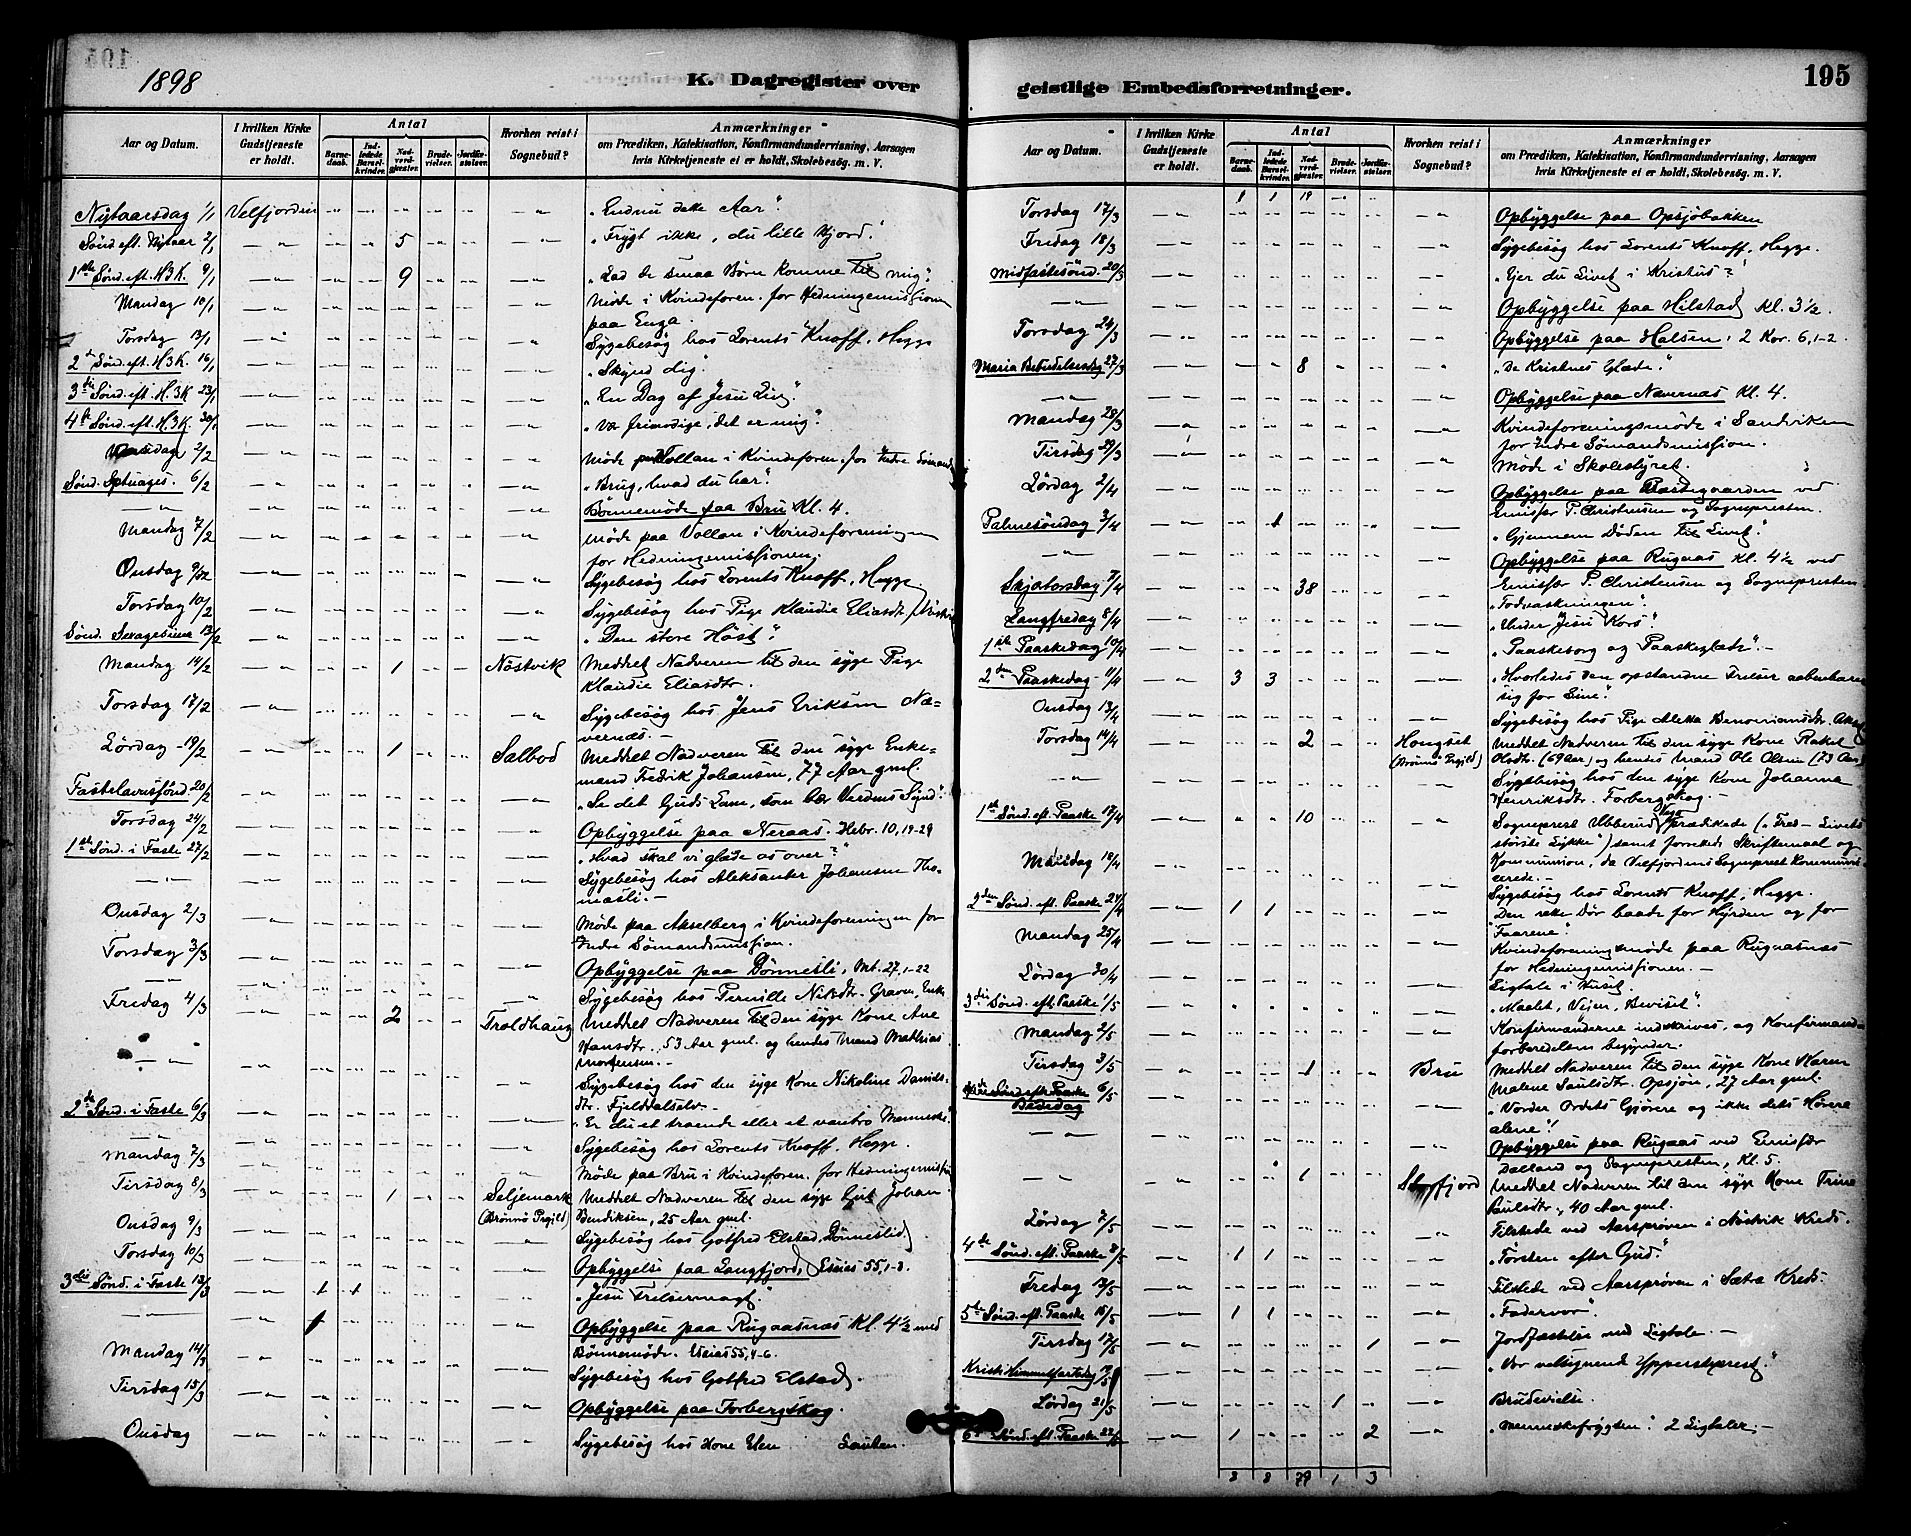 1898
K. Dagregister over
Aar og Datum.
I hvilken Kirke Gudstjeneste er holdt.
Antal
Barnedaab.
Indledede Barselkvinder.
Nadverdgjester.
Brudevielser.
Jordfæstelser.
Hvorhen reist i Sognebud?
Anmærkninger
om Prædiken, Katekisation, Konfirmandundervisning, Aarsagen
hvis Kirketjeneste ei er holdt, Skolebesøg. m. V.
Nytaarsdag 1/1 Velfjorden „Endnu dette Aar“.
Sønd. eft. Nytaar 2/1 5 „Frygt ikke, du lille Hjord.“
1ste Sønd. eft. H3K. 9/1 9 „Lad de smaa Børn komme til mig“.
Mandag 10/1 Møde i Kvindeforen. for Hedningemissionen
paa Enga.
Torsdag 13/1 Sygebesøg hos Lorents Knoff, Hegge
2den Sønd. eft. H3K. 16/1 „Skynd dig“.
3die Sønd. eft. H.3K 23/1 „En Dag af Jesu Liv“.
4de Sønd. eft. H.3K. 30/1 „Vær frimodige, det er mig“.
2/2 Møde Vollan i Kvindeforen. for Indre Sømand
Sønd. Septuages. 6/2 „Brug, hvad du har“.
Bønnemøde paa Bru Kl. 4.
Mandag 7/2 Møde paa Vollan i Kvindeforeningen
for Hedningemissionen.
Onsdag 9/2 Sygebesøg hos Lorents Knoff, Hegge.
Torsdag 10/2 Sygebesøg hos Pige Klaudie Eliasdtr.
Sønd. Sexagesima 13/2 „Den store Høst“.
Mandag 14/2 1 Nøstvik Meddelt Nadveren til den syge Pige
Klaudie Eliasdtr.
Torsdag 17/2 Sygebesøg hos Jens Eriksen Næ-
vernes.
Lørdag 19/2 1 Salbod Meddelt Nadveren til den syge Enke-
mand Fredrik Johansen, 77 Aar gml.
Fastelavnssønd. 20/2 „Se det Guds Lam, som bær Verdens Synd“.
Torsdag 24/2 Opbyggelse paa Neraas. Hebr. 10, 19-29
1ste Sønd. i Faste 27/2 „Hvad skal vi glæde os over?“
Sygebesøg hos Aleksanter Johansen Tho-
masli.
Onsdag 2/3 Møde paa Akselberg i Kvindeforeningen for
Indre Sømandsmission.
Torsdag 3/3 Opbyggelse paa Dønnesli, Mt. 27, 1-22
Sygebesøg hos Pernille Nilsdtr. Graven, Enke
Fredag 4/3 2 Troldhaug Meddelt Nadveren til den syge Kone Ane
Hansdtr., 53 Aar gml. og hendes Mand Mathias
Mortensen.
Sygebesøg hos den syge Kone Nikoline Davids-
dtr. Fjelddalselv.
2den Sønd. i Faste 6/3 „Er du et troende eller et vantro Menneske“.
Sygebesøg hos Lorents Knoff, Hegge.
Mandag 7/3 Møde paa Bru i Kvindeforen. for Hedningemissionen
Tirsdag 8/3 1 Seljemark (Brønnø Prgjld) Meddelt Nadveren til den syge Gut Johan
Bendiksen, 25 Aar gml.
Onsdag 9/3 Sygebesøg hos Gotfred Elstad, Dønneslid
Torsdag 10/3 Opbyggelse paa Langfjord, Esaias 55, 1-3.
3die Sønd. i Faste 13/3 1 1 „Jesu Frelsermagt“.
1 Opbyggelse paa Rugaasnæs Kl. 4½ med
Bønnemøde. Esaias 55, 4-6.
Mandag 14/3 Sygebesøg hos Gotfred Elstad.
Tirsdag 15/3 Opbyggelse paa Forbergskog.
Onsdag Sygebesøg hos Kone Elen
geistlige Embedsforretninger.
195
Aar og Datum.
I hvilken Kirke Gudstjeneste er holdt.
Antal
Barnedaab.
Indledede Barselkvinder.
Nadverdgjester.
Brudevielser.
Jordfæstelser.
Hvorhen reist i Sognebud?
Anmærkninger
om Prædiken, Katekisation, Konfirmandundervisning, Aarsagen
hvis Kirketjeneste ei er holdt, Skolebesøg. m. V.
1 1 19
Torsdag 17/3 Opbyggelse paa Opsjøbakken
Fredag 18/3 Sygebesøg hos Lorents Knoff, Hegge.
Midfastesønd. 20/3 „Ejer du Livet i Kristus?“
Opbyggelse paa Hilstad Kl. 3½.
Torsdag 24/3 Opbyggelse paa Halsen, 2 Kor. 6, 1-2.
Maria Bebudelsesdag 27/3 8 „De Kristnes Glæde“.
Opbyggelse paa Nævernæs Kl. 4.
Mandag 28/3 Kvindeforeningsmøde i Sandviken
for Indre Sømandsmission.
Tirsdag 29/3 Møde i Skolestyret.
Lørdag 2/4 Opbyggelse paa Prestegaarden ved
Emissær P. Christensen og Sognepresten.
Palmesøndag 3/4 1 „Gjennem Døden til Livet“.
Opbyggelse paa Rugaas Kl. 4½ ved
Emissær P. Christensen og Sognepresten
Skjærtorsdag 7/4 38 „Fodvaskningen“.
Langfredag 8/4 „Under Jesu Kors“.
1ste Paaskedag 10/4 „Paaskesorg og Paaskeglæde“.
2den Paaskedag 11/4 3 3 „Hvorledes den opstandne Frelser aabenbarer
sig for Sine“.
Onsdag 13/4 Sygebesøg hos Pige Aletta Benoniansdtr.
Torsdag 14/4 2 Hongset (Brønnø Prgjld) Meddelt Nadveren til den syge Kone Rakel
Olsdtr. (69 Aar) og hendes Mand Ole Olsen (73 Aar)
Sygebesøg hos den syge Kone Johanna
Henriksdtr. Forbergskog.
1ste Sønd. eft. Paaske 17/4 10 Sogneprest Ebberud, Vega prædikede („Fred - Livets
største Lykke“) samt forrettede Skriftemaal og
Kommunion, da Velfjordens Sogneprest kommuni-
cerede.
Mandag 18/4 Sygebesøg hos Lorents Knoff, Hegge.
2den Sønd. eft. Paaske 24/4 1 1 Den rette Dør baade for Hyrden og for
Faarene“.
Mandag 25/4 Kvindeforeningsmøde paa Rugaasnæs
for Hedningemissionen.
Lørdag 30/4 Ligtale i Huset.
3die Sønd. eft. Paaske 1/5 „Maalet, Vejen, Beviset“.
Mandag 2/5 Konfirmanderne indskrives, og Konfirmand-
forberedelsen begynder.
Tirsdag 3/5 1 Bru Meddelt Nadveren til den syge Kone Karen
Malene Paulsdtr. Opsjøn, 27 Aar gml.
Bededag 6/5 „Vorder Ordets Gjørere og ikke dets Hørere
alene“!
Opbyggelse paa Rugaas ved Emissær
Dalland og Sognepresten, Kl. 5.
1 Meddelt Nadveren til den syge Kone Trine
Paulsdtr., 40 Aar gml.
Lørdag 7/5 Tilstede ved Aarsprøven i Nøstvik Kreds.
4de Sønd. eft. Paaske 8/5 1 1 „Tørsten efter Gud“.
Fredag 13/5 Tilstede ved Aarsprøven i Sætra Kreds.
5te Sønd. eft. Paaske 15/5 1 1 „Fadervor“.
Tirsdag 17/5 1 Jordfæstelse med Ligtale.
Kristi Himmelfartsdag 19/5 „Vor velsignende Ypperstprest“.
Lørdag 21/5 1 Brudevielse
6te Sønd. eft. Paaske 22/5 1 2 „Menneskefrygten“. 2 Ligtaler.
8 8 79 1 3